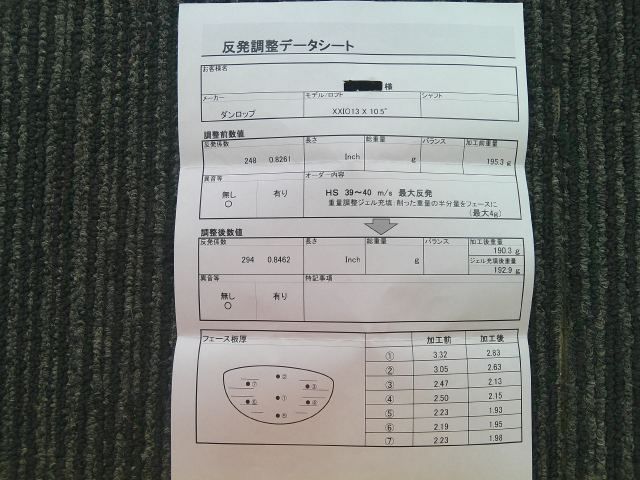 反発調整データシート
お客様名
様
メーカー モデル/ロフト シャフト
ダンロップ XXIO13 X 10.5°
調整前数値
反発係数 長さ 総重量 バランス 加工前重量
248 0.8261 Inch g 195.3 g
異音等 オーダー内容
無し 有り HS 39～40 m/s 最大反発
○ 重量調整ジェル充填:削った重量の半分量をフェースに
(最大4g)
調整後数値
反発係数 長さ 総重量 バランス 加工後重量
190.3 g
294 0.8462 Inch g ジェル充填後重量
192.9 g
異音等 特記事項
無し 有り
○
フェース板厚 加工前 加工後
① 3.32 2.83
② 3.05 2.63
③ 2.47 2.13
④ 2.50 2.15
⑤ 2.23 1.93
⑥ 2.19 1.95
⑦ 2.23 1.98
②
⑦ ③
①
⑥ ④
⑤